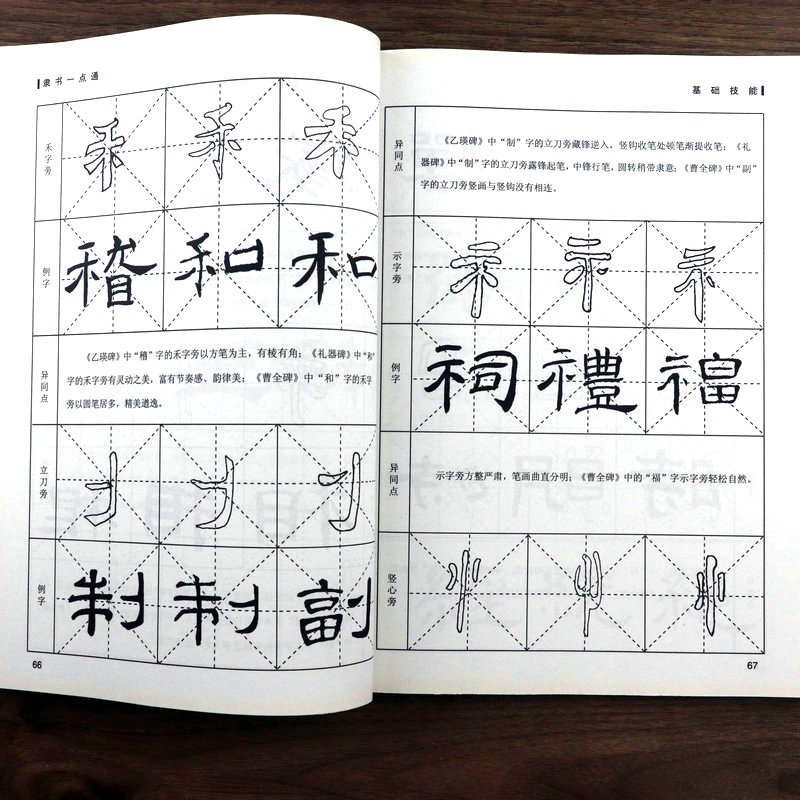 隶书一点通
禾字旁
例字
稽和和
异同点
《乙瑛碑》中“稽”字的禾字旁以方笔为主，有棱有角；《礼器碑》中“和”
字的禾字旁有灵动之美，富有节奏感、韵律美；《曹全碑》中“和”字的禾字
旁以圆笔居多，精美遒逸。
立刀旁
例字
制制副
66
基础技能
异同点
《乙瑛碑》中“制”字的立刀旁藏锋逆入，竖钩收笔处顿笔渐提收笔；《礼
器碑》中“制”字的立刀旁露锋起笔，中锋行笔，圆转稍带隶意；《曹全碑》中“副”
字的立刀旁竖画与竖钩没有相连。
示字旁
例字
祠禮福
异同点
示字旁方整严肃，笔画曲直分明；《曹全碑》中的“福”字示字旁轻松自然。
竖心旁
67